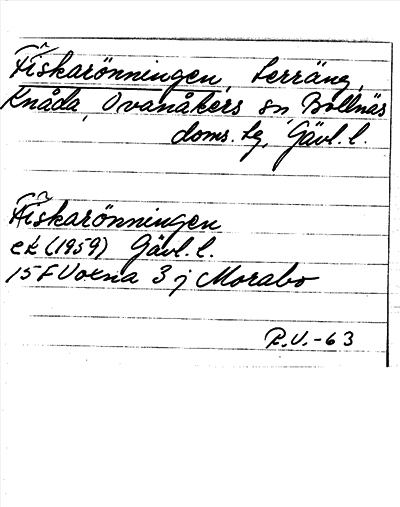 Fiskarönningen, terräng,
Knåda, Ovanåkers sn Bollnäs
doms. hg, Gävl. l.
Fiskarönningen
ek (1959) Gävl. l.
15F Voxna 3 j Morabo
R.V.-63